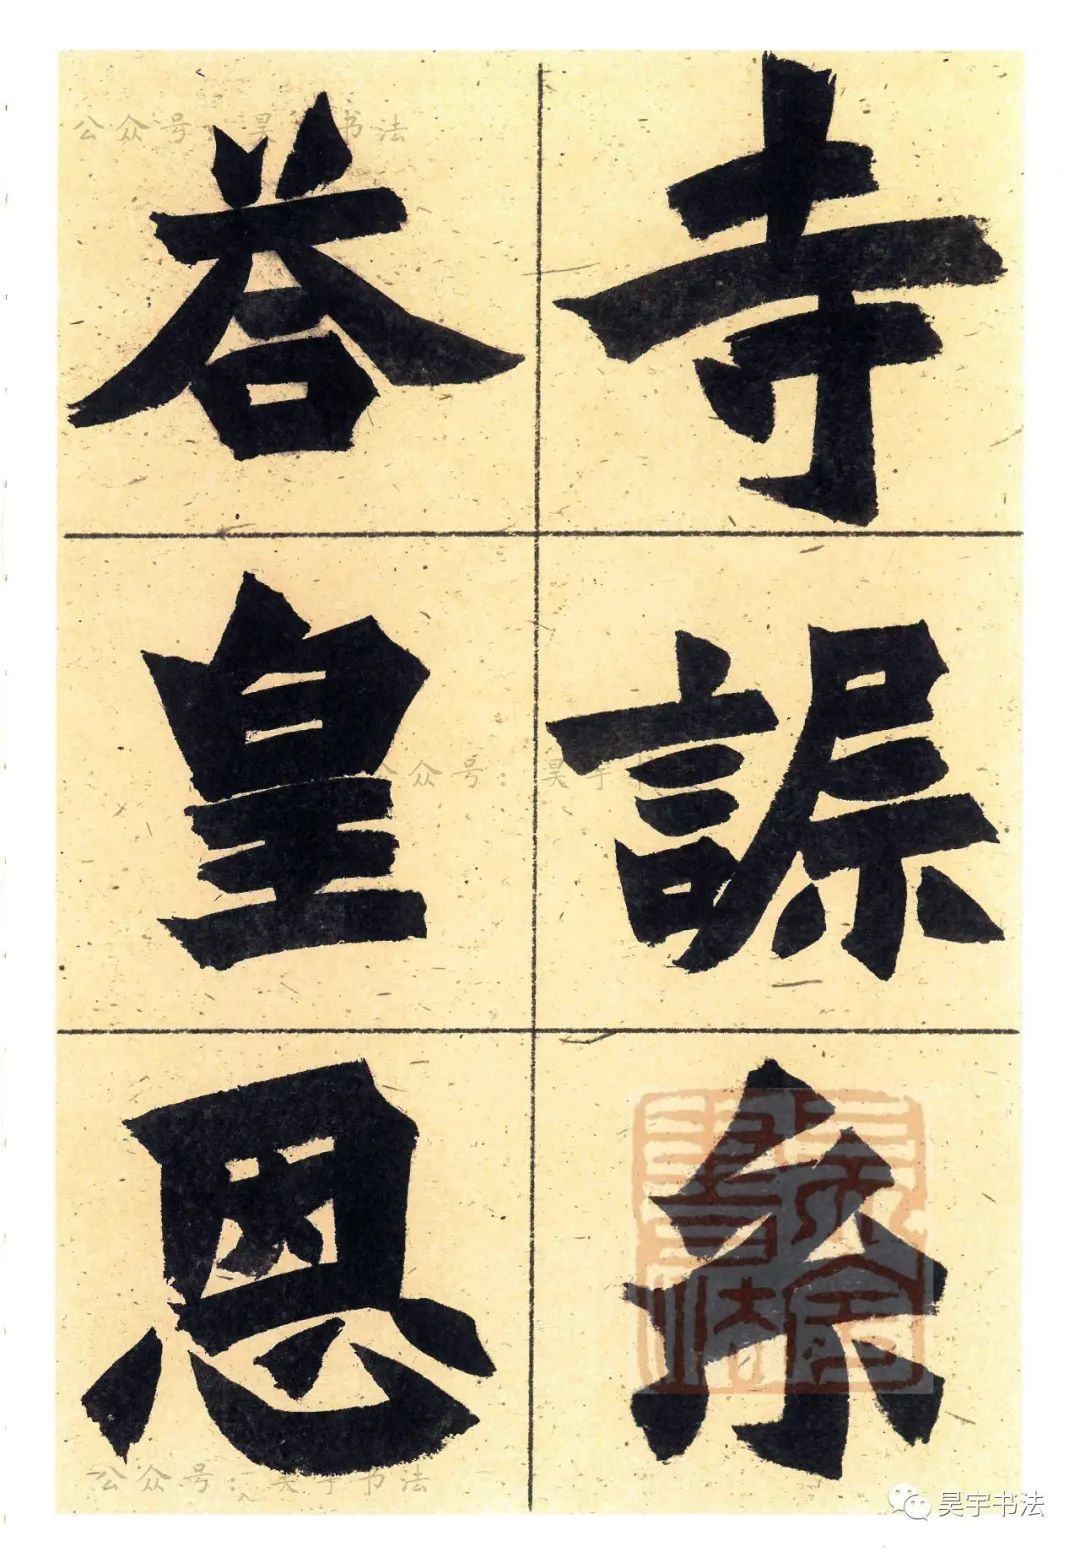 寺
系
荅
皇
恩
公众号：昊宇书法
公众号：昊宇书法
公众号：昊宇书法
昊宇书法